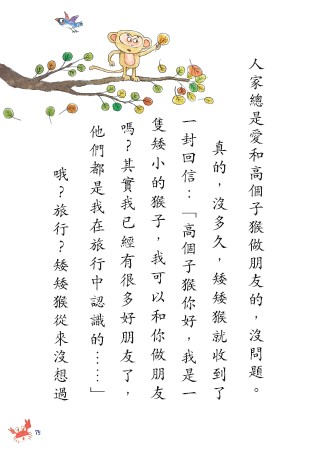 人家總是愛和高個子猴做朋友的，沒問題。
真的，沒多久，矮矮猴就收到了
一封回信：「高個子猴你好，我是一
隻矮小的猴子，我可以和你做朋友
嗎？其實我已經有很多好朋友了，
他們都是我在旅行中認識的……」
哦？旅行？矮矮猴從來沒想過
75